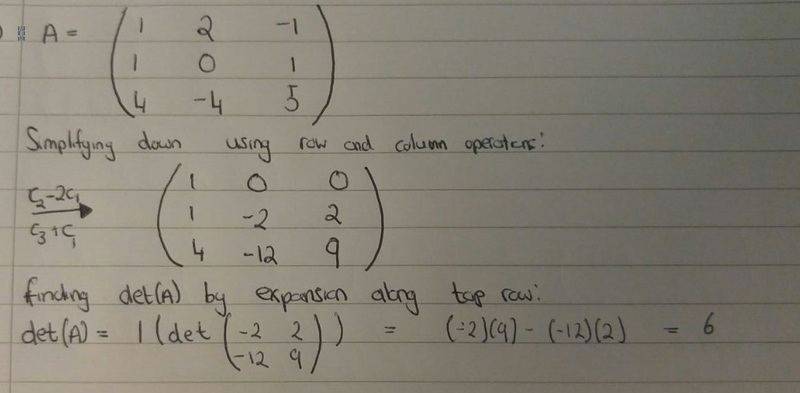 A = ( 1 2 -1
1 0 1
4 -4 5 )
Simplifying down using row and column operators:
C₂-2C₁
C₃+C₁
( 1 0 0
1 -2 2
4 -12 9 )
finding det(A) by expansion along top row:
det(A) = 1(det ( -2 2 ) ) = (-2)(9) - (-12)(2) = 6
-12 9